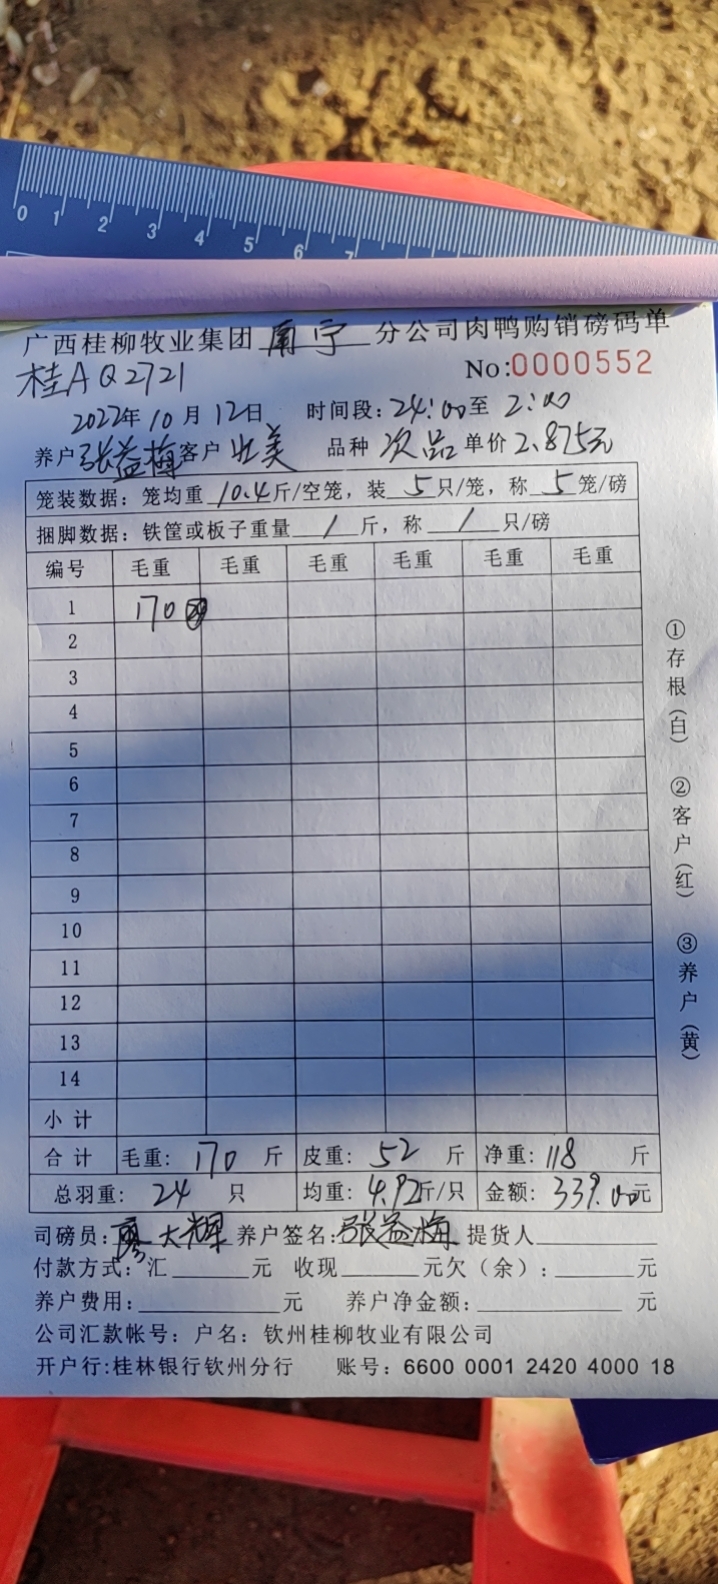 0 1 2 3 4 5 6 7
广西桂柳牧业集团 南宁 分公司肉鸭购销磅码单
桂A Q2721 No:0000552
2022年10月12日 时间段:24:00至2:00
养户张益梅客户壮美 品种 次品 单价2.875元
笼装数据：笼均重 10.4斤/空笼，装 5 只/笼，称 5 笼/磅
捆脚数据：铁筐或板子重量 / 斤，称 / 只/磅
编号 毛重 毛重 毛重 毛重 毛重 毛重
1 170
2
3
4
5
6
7
8
9
10
11
12
13
14
小计
合计 毛重： 170 斤 皮重： 52 斤 净重：118 斤
总羽重： 24 只 均重：4.92斤/只 金额：339.00元
司磅员：廖大辉 养户签名:张益梅 提货人
付款方式：汇 元 收现 元欠（余）： 元
养户费用： 元 养户净金额： 元
公司汇款帐号：户名：钦州桂柳牧业有限公司
开户行:桂林银行钦州分行 账号：6600 0001 2420 4000 18
①存根（白） ②客户（红） ③养户（黄）